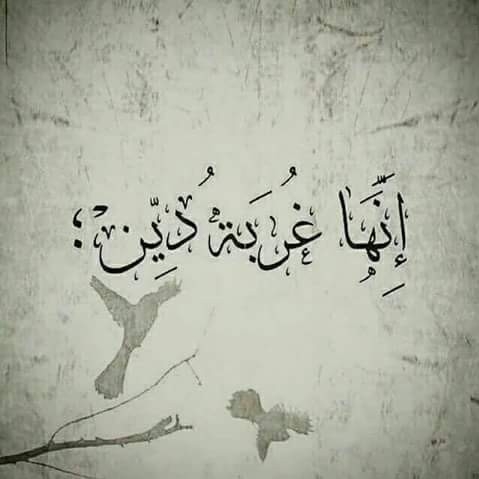 إِنَّهَا غُربَة دُيِّن ؛